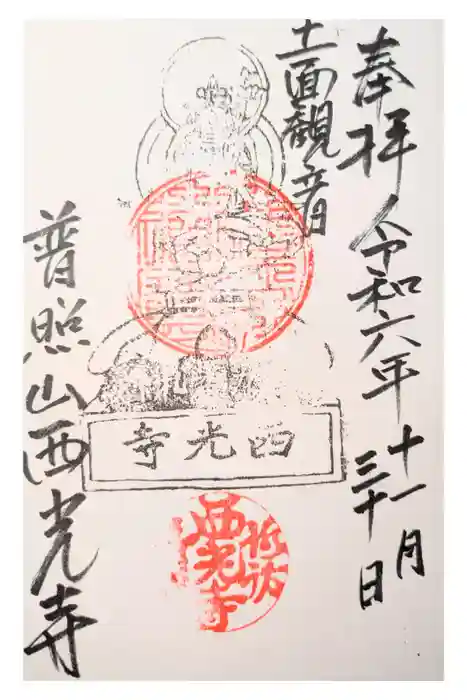 奉拝 令和六年 十一月
三十日
十一面観音
西光寺
普照山西光寺
西光寺